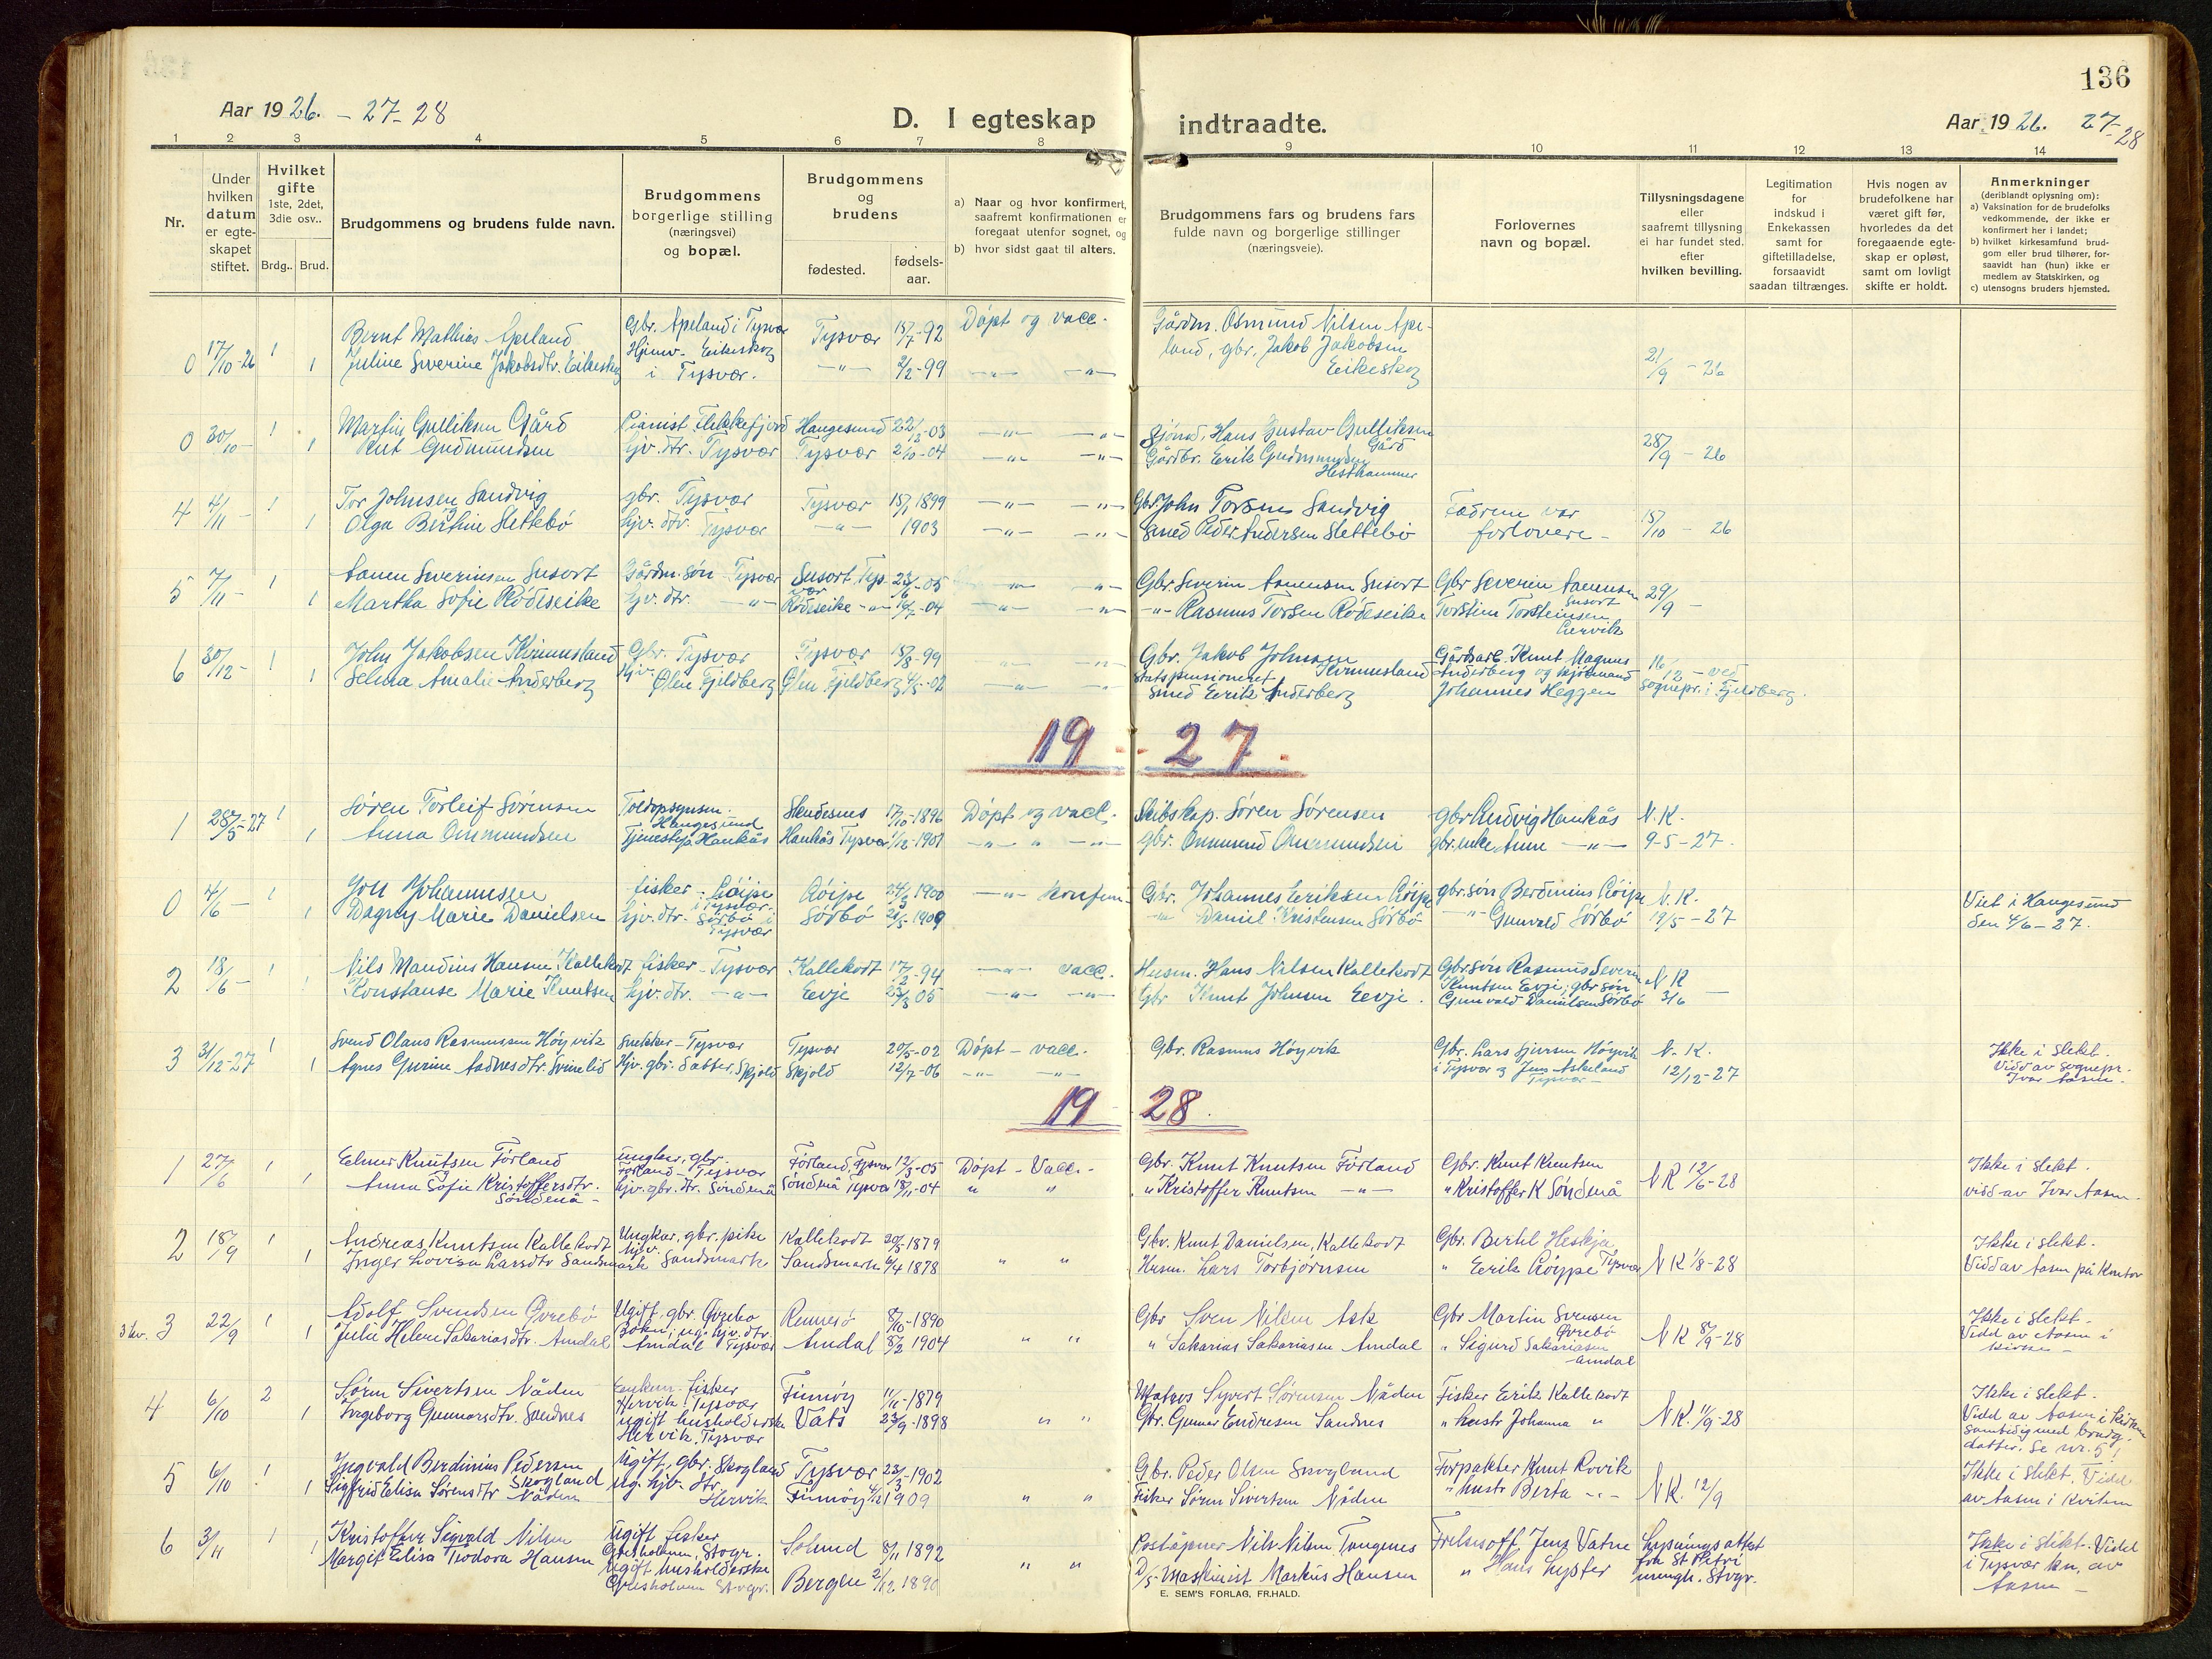 136
Aar 1926. – 27- 28
D. I egteskap
indtraadte.
Aar 1926. 27-28
1 2 3 4 5 6 7 8 9 10 11 12 13 14
Nr.
Under hvilken datum er egteskapet stiftet.
Hvilket gifte 1ste, 2det, 3die osv..
Brdg.. Brud.
Brudgommens og brudens fulde navn.
Brudgommens borgerlige stilling (næringsvei) og bopæl.
Brudgommens og brudens
fødested.
fødsels-aar.
a) Naar og hvor konfirmert, saafremt konfirmationen er foregaat utenfor sognet, og
b) hvor sidst gaat til alters.
Brudgommens fars og brudens fars fulde navn og borgerlige stillinger (næringsveie).
Forlovernes navn og bopæl.
Tillysningsdagene eller saafremt tillysning ei har fundet sted. efter hvilken bevilling.
Legitimation for indskud i Enkekassen samt for giftetilladelse, forsaavidt saadan tiltrænges.
Hvis nogen av brudefolkene har været gift før, hvorledes da det foregaaende egteskap er opløst, samt om lovligt skifte er holdt.
Anmerkninger (deriblandt oplysning om):
a) Vaksination for de brudefolks vedkommende, der ikke er konfirmert her i landet;
b) hvilket kirkesamfund brudgom eller brud tilhører, forsaavidt han (hun) ikke er medlem av Statskirken, og
c) utensogns bruders hjemsted.
0 17/10-26 1 Bernt Mathias Apeland Gbr. Apeland i Tysvær Tysvær 15/7-92 Döpt og vacc. Gårdm. Osmund Nilsen Ape-
1 Juline Severine Jakobsdtr. Eikeskog Hjemv. Eikeskog i Tysvær. –"– 2/2-99 –"– –"– land, gbr. Jakob Jakobsen Eikeskog 21/9 – 26
0 30/10- 1 Martin Gulliksen Gård Pianist Flekkefjord Haugesund 22/2-03 –"– –"– Sjömd. Hans Gustav Gulliksen Gård
1 Rut Gudmundsen hjv. dtr. Tysvær Tysvær 2/10-04 –"– –"– Gårdbr. Erik Gudmundsen Hesthammer 28/9 – 26
4 4/11- 1 Tor Johnsen Sandvig gbr. Tysvær Tysvær 15/1 1899 –"– –"– Gbr. John Torsen Sandvig Fædrene var
1 Olga Bertine Slettebö hjv. dtr. Tysvær –"– 1903 –"– –"– Smed Peder Andersen Slettebö forlovere – 15/10 – 26
5 7/11- 1 Aanen Severinsen Susort Gårdm. sön Tysvær Susort Tysvær 23/6-05 –"– –"– Gbr. Severin Aanensen Susort Gbr Severin Aanensen Susort
1 Martha Sofie Rödseike hjv. dtr. –"– Rödseike –"– 19/7-04 –"– –"– –"– Rasmus Torsen Rödseike Torstein Torsteinsen Gervik 29/9 –
6 30/12- 1 John Jakobsen Kvinnesland Gbr. Tysvær Tysvær 15/8-99 –"– –"– Gbr. Jakob Johnsen Kvinnesland Gårdsarb. Knut Magnus
1 Selma Amalie Anderberg Hjv. Ølen Fjeldberg Ølen Fjeldberg 4/5-02 –"– –"– Statspensioneret smed Eerik Anderberg Anderberg og sjömand Johannes Heggen 16/12 – ved sognepr. i Fjeldberg.
19 - 27.
1 28/5-27 1 Søren Torleif Sörensen Toldopsynsm. Haugesund Skudesnes 17/10-1896 Döpt og vacc. Skibskap. Søren Sörensen gbr Ludvig Haukås N.K.
1 Anna Ommundsen Tjenestepi. Haukås Haukås Tysvær 1/12-1901 –"– –"– gbr. Ommund Ommundsen gbr. enke Anne –"– 9-5-27.
0 4/6 – 1 Jon Johannesen fisker – Röipe i Tysvær. Röipe 24/3 1900 –"– konfirm. Gbr. Johannes Eriksen Röipe gbr. sön Berdinius Röipe N.K. Viet i Haugesund
1 Dagny Marie Danielsen hjv. dtr. Sörbö i Tysvær Sörbö 21/5 1909 –"– Daniel Kristensen Sörbö –"– Gunvald Sörbö 19/5-27 den 4/6-27.
2 18/6 – 1 Nils Maudius Hansen Kallekodt fisker – Tysvær Kallekodt 17/2-94 –"– vacc. Husm. Hans Nilsen Kallekodt Gbr. sön Rasmus Severin N K
1 Konstanse Marie Knutsen hjv. dtr. –"– Eevje 23/3 05 –"– –"– Gbr Knut Johnsen Eevje. Knutsen Evje; gbr sön Gunvald Danielsen Sörbö 3/6 –
3 31/12-27 1 Svend Olaus Rasmussen Höyvik Snekker – Tysvær Tysvær 20/5-02 Döpt – vacc. Gbr. Rasmus Höyvik Gbr. Lars Sjursen Höyvik N.K. Ikke i slekt.
1 Agnes Gurine Aadnesdtr. Svinelid Hjv. gbr. datter, Skjold Skjold 12/7-06 –"– –"– i Tysvær og Jens Askeland Tysvær – 12/12-27 Vidd av sognepr. Ivar Aasen.
19 28.
1 27/6 1 Elmer Knutsen Førland ungkar, gbr. Førland – Tysvær Førland, Tysvær 12/3-05 Döpt – Vacc. – Gbr. Knut Knutsen Førland Gbr. Knut Knutsen N K 12/6-28 Ikke i slekt.
1 Anna Sofie Kristoffersdtr. Söndenå – hjv. gbr. dtr. Söndenå Söndenå Tysvær 18/11-04 " " " Kristoffer Knutsen –"– " Kristoffer K Söndenå vidd av Ivar Aasen.
2 18/9 1 Andreas Knutsen Kallekodt Ungkar, gbr. pike Kallekodt 20/5 1879 Gbr. Knut Danielsen, Kallekodt Gbr. Bertel Heskja Ikke i slekt.
1 Inger Lovisa Larsdtr Sandsmark hjv. Sandsmark Sandsmark 6/4 1878 " " Husm. Lars Torbjörnsen " Eerik Röippe Tysvær N K 1/8-28 Vidd av Aasen på Kontor
3 kv. 3 22/9 1 Adolf Svendsen Øvrebö Ugift, gbr. Øvrebö Rennesö 8/10-1890 Gbr Sven Nilsen Ask Gbr Martin Svensen Øvrebö Ikke i slekt.
1 Julie Helene Sakariasdtr. Amdal Bokn; ug. hjv. dtr. Amdal Tysvær Amdal 8/2 1904 " " " Sakarias Sakariasen Amdal " Sigurd Sakariasen Amdal N K 8/9-28 Vidd av Aasen i kirken –
4 6/10 2 Sören Sivertsen Nåden Enkem. fisker Hervik Tysvær Finnöy 11/11-1879 Matros Syvert Sørensen Nåden Fisker Erik Kallekodt Ikke i slekt.
1 Ingeborg Gunnarsdtr. Sandnes ugift husholderske Hervik, Tysvær Vats 23/9-1898 " " Gbr. Gunnar Endresen Sandnes " hustr Johanna " N.K. 11/9-28 Vidd av Aasen i kirken samtidig med brudg. datter. Se nr. 5!
5 6/10 1 Ingvald Berdinius Pedersen Skogland Ugift, gbr. Skogland Tysvær 23/3-1902 Gbr. Peder Olsen Skogland Forpakter Knut Rovik Ikke i slekt. Vidd
1 Sigfrid Elisa Sørensdtr Nåden ug. hjv. dtr. Hervik Finnöy 4/12 1909 " " Fisker Sören Sivertsen Nåden " hustr Berta –"– N K. 12/9 av Aasen i kirken
6 3/11 1 Kristoffer Sigvald Nilsen ugift fisker Solund 8/11 1892 Poståpner Nils Nilsen Tungenes Frelsesoff. Jens Vatne Lysningsattest Ikke i slekt. Vidd
1 Margit Elisa Teodora Hansen Ugift husholderske Bergen 2/12 1890 " " D/S-Maskinist Markus Hansen " Hans Lyster fra St Petri menigh. Stvgr. i Tysvær kn, av Aasen –
E. SEM'S FORLAG, FR.HALD.